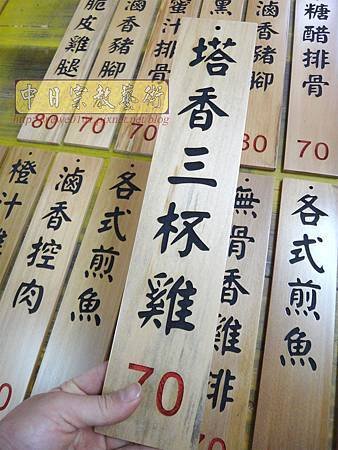 脆皮雞腿
80
滷香豬腳
70
蜜汁排骨
70
黑
滷香腳
80
糖醋排骨
70
中日宗教藝術
塔香三杯雞
70
橙汁雞
滷香控肉
各式煎魚
無骨香雞排
70
各式煎魚